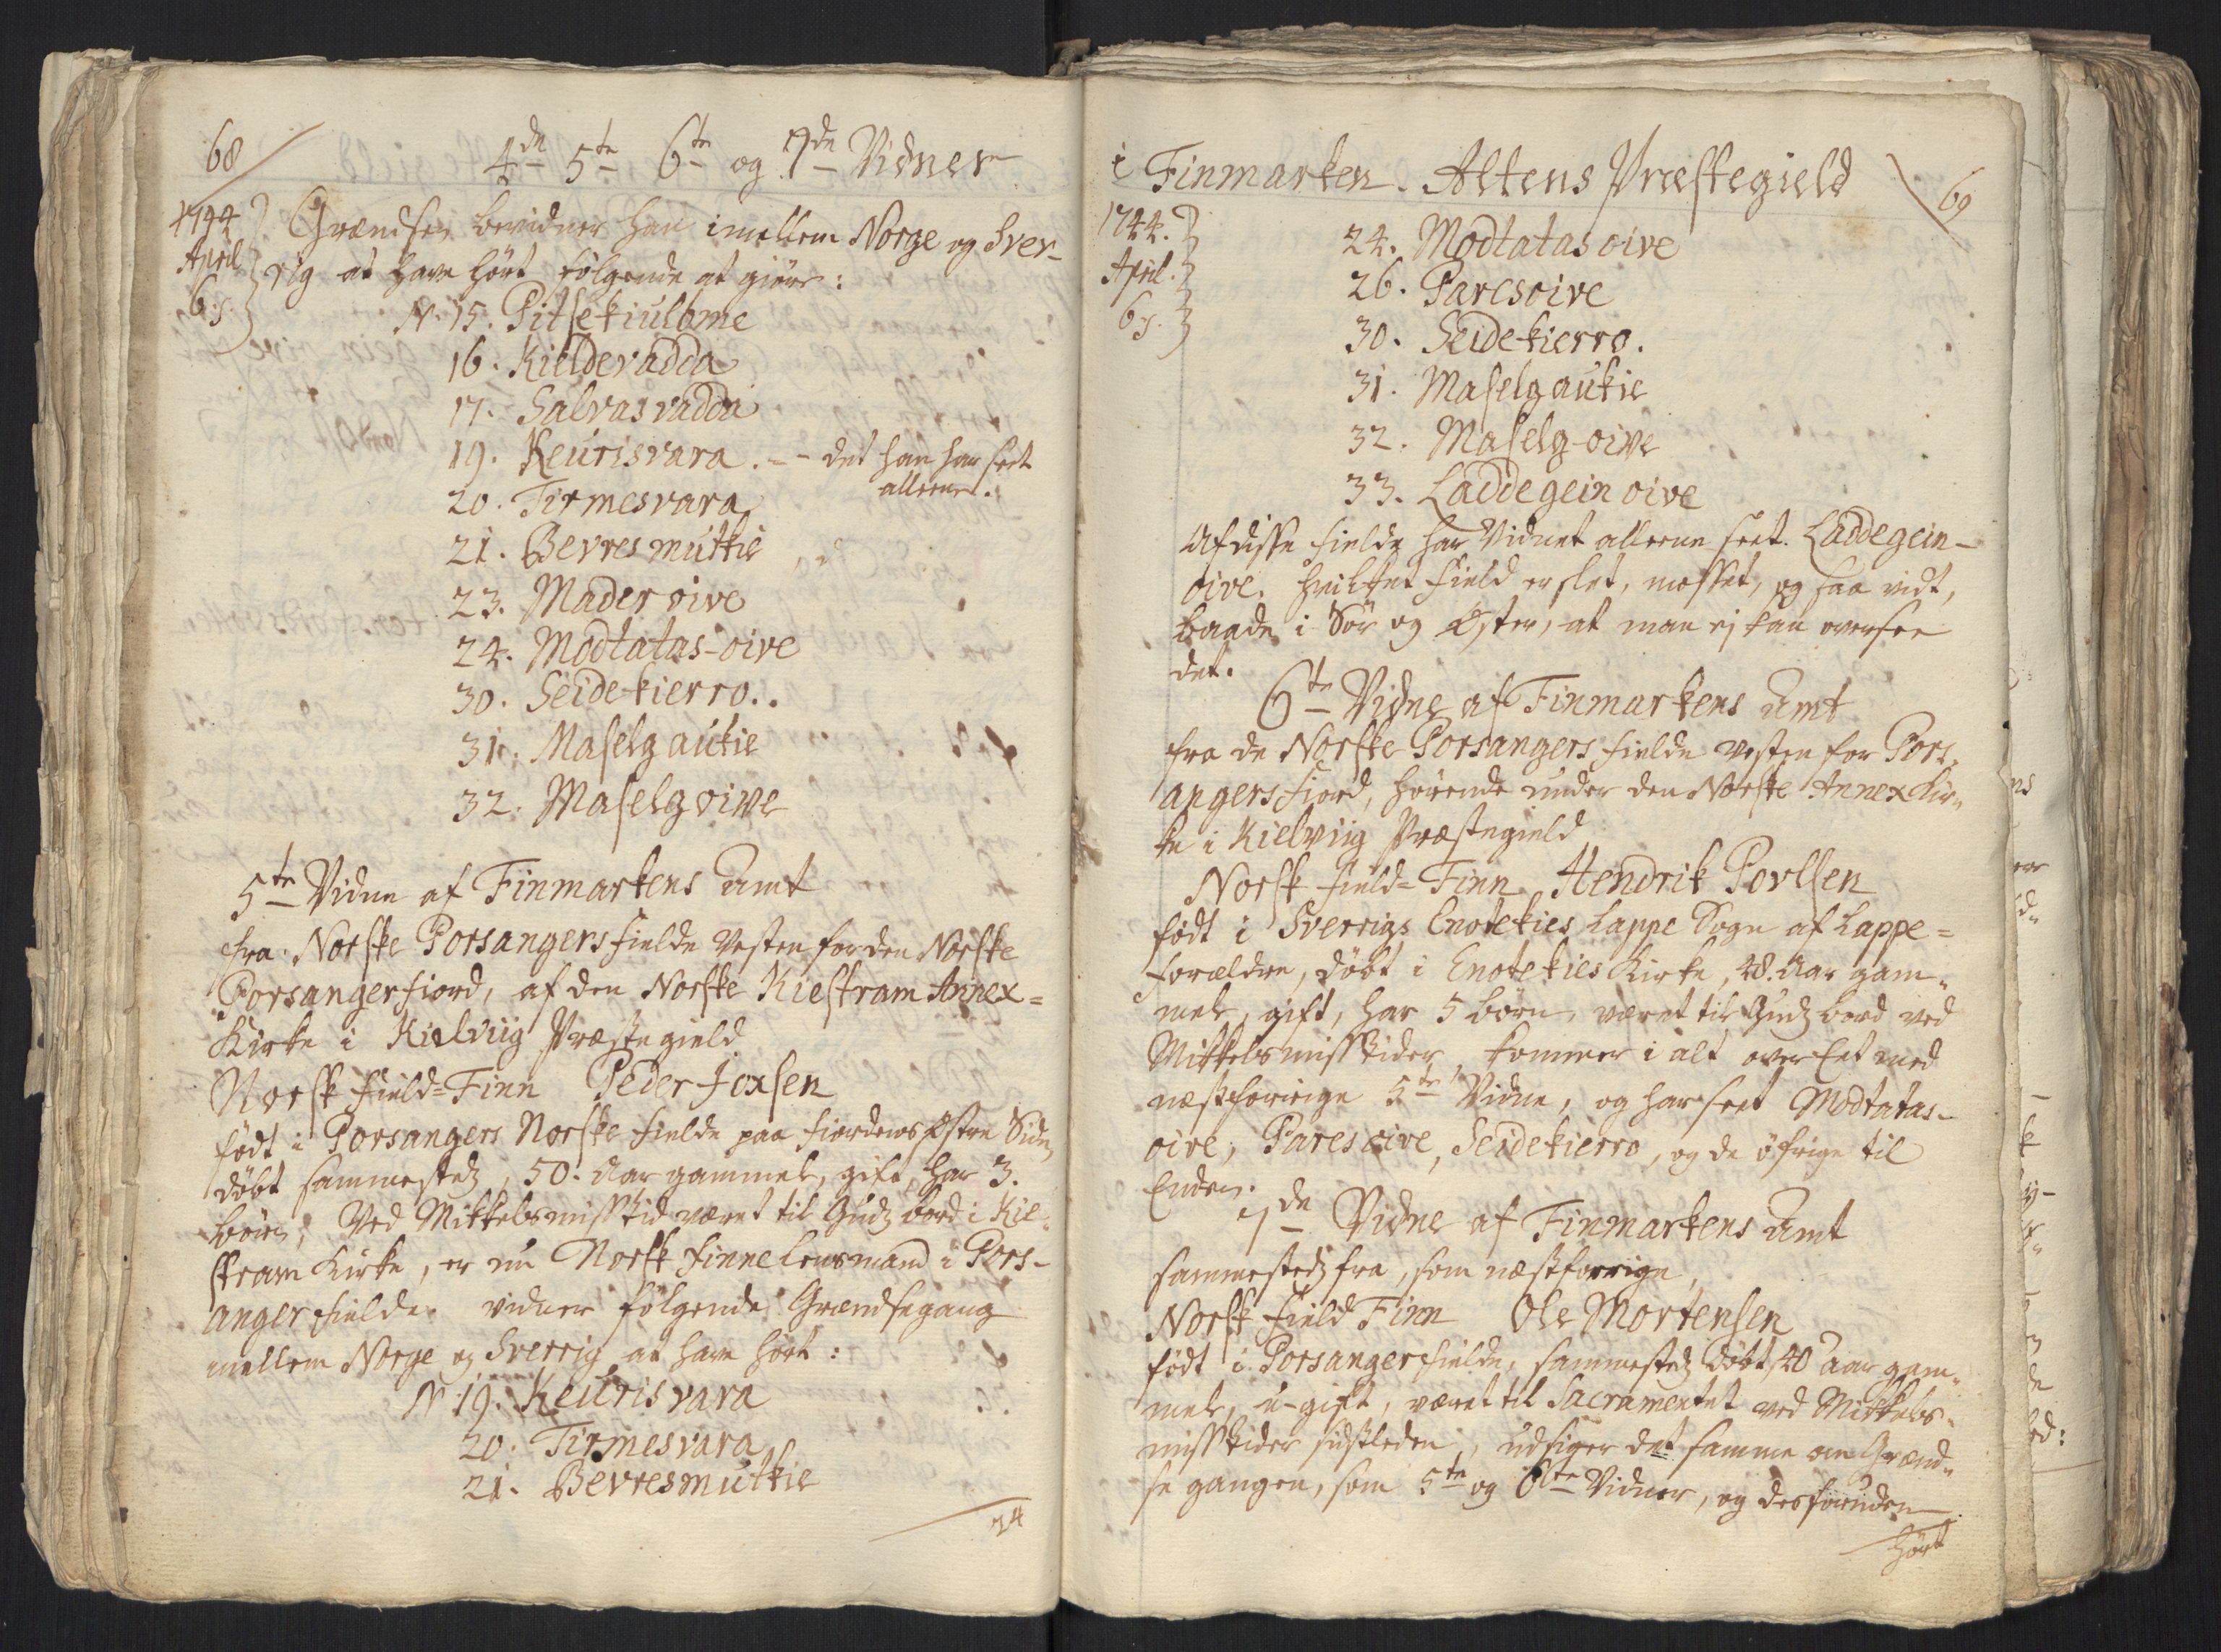 68
4de 5te 6te og 7de Vidner
1744
April
6.
Grændsen bevidner han imellem Norge og Sver-
rig at have hört følgende at giöre:
N. 15. Pitsekiulbme
16. Kieldevadda
17. Salvasvadda
19. Keurisvara. -- det han har seet
alleene.
20. Tirmesvara
21. Bevresmutkie
23. Maderoive
24. Modtatas-oive
30. Seidekierro..
31. Maselgautie
32. Maselgoive
5te Vidne af Finmarkens Amt
fra Norske Porsangers fielde Vesten for den Norske
Porsangerfiord, af den Norske Kiestram Annex=
Kirke i Kielviig Præstegield
Norsk field=Finn Peder Joxsen
födt i Porsangers Norske fielde paa fiordens östre Side
döbt sammestedz, 50. Aar gammel, gift, har 3.
börn, Ved Mikkelsmisstid været til Gudz bord i Kie-
stram Kirke, er nu Norsk Finnelensmand i Pors-
anger fielde. vidner følgende Grændsegang
mellem Norge og Sverrig at have hört:
N. 19. Keurisvara
20. Tirmesvara
21. Bevresmutkie
24
i Finmarken. Altens Præstegield
69
1744.
April.
6.
24. Modtatas oive
26. Paresoive
30. Seidekierro.
31. Maselgautie
32. Maselg-oive
33. Laddegein oive
Af disse fielde har Vidnet alleene seet. Laddegein-
oive. hvilket field er slet, mosset, og saa vidt,
baade i Sör og Öster, at man ej kan oversee
det.
6te Vidne af Finmarkens Amt
fra de Norske Porsangers fielde vesten for Pors-
angersfiord, hörende under den Norske Annex Kir-
ke i Kielviig Præstegield
Norsk field=Finn Hendrik Povlsen
födt i Sverrigs Enotekies Lappe Sogn af Lappe=
forældre, döbt i Enotekies Kirke, 48. Aar gam-
mel, gift, har 5 börn, været til Gudz bord ved
Mikkelsmisstider, kommer i alt over Eet med
næstforrige 5te Vidne, og har seet Modtatas-
oive, Paresoive, Seidekierro, og de öfrige til
Enden.
7de Vidne af Finmarkens Amt
sammestedz fra, som næstforrige,
Norsk field Finn Ole Mortensen
födt i Porsangerfielde, sammestedz döbt, 40 aar gam-
mel, u-gift, været til Sacramentet ved Mikkels-
misstider sidstleden, udsiger det samme om Grænd-
se gangen, som 5te og 6te Vidner, og desforuden
hört